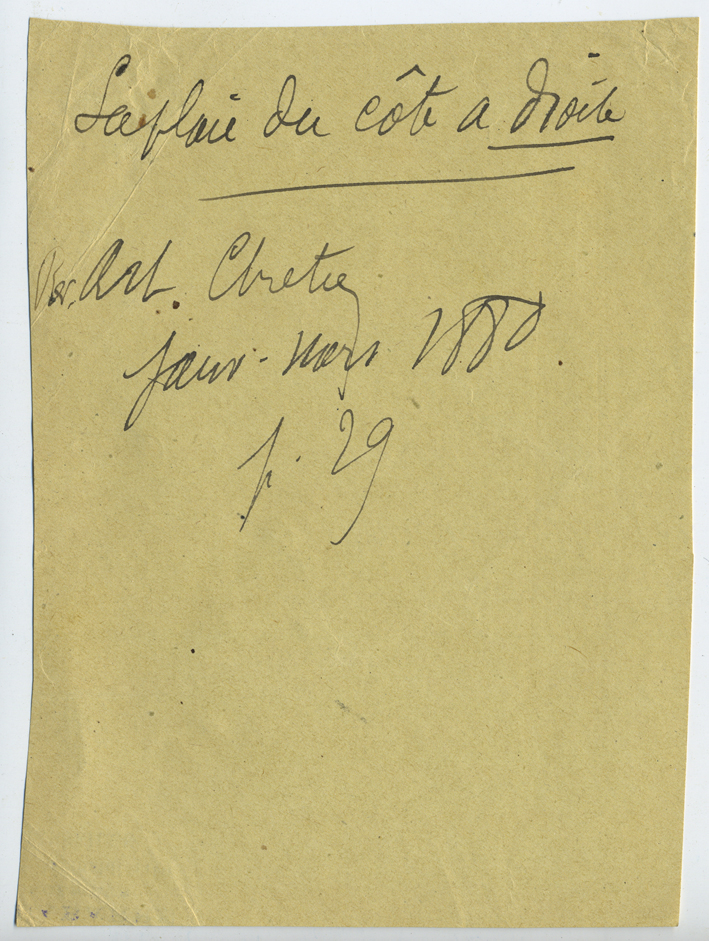 La plaie du côté a droite
Rev. Art. Chretien
Janv - Mars 1880.
p. 29